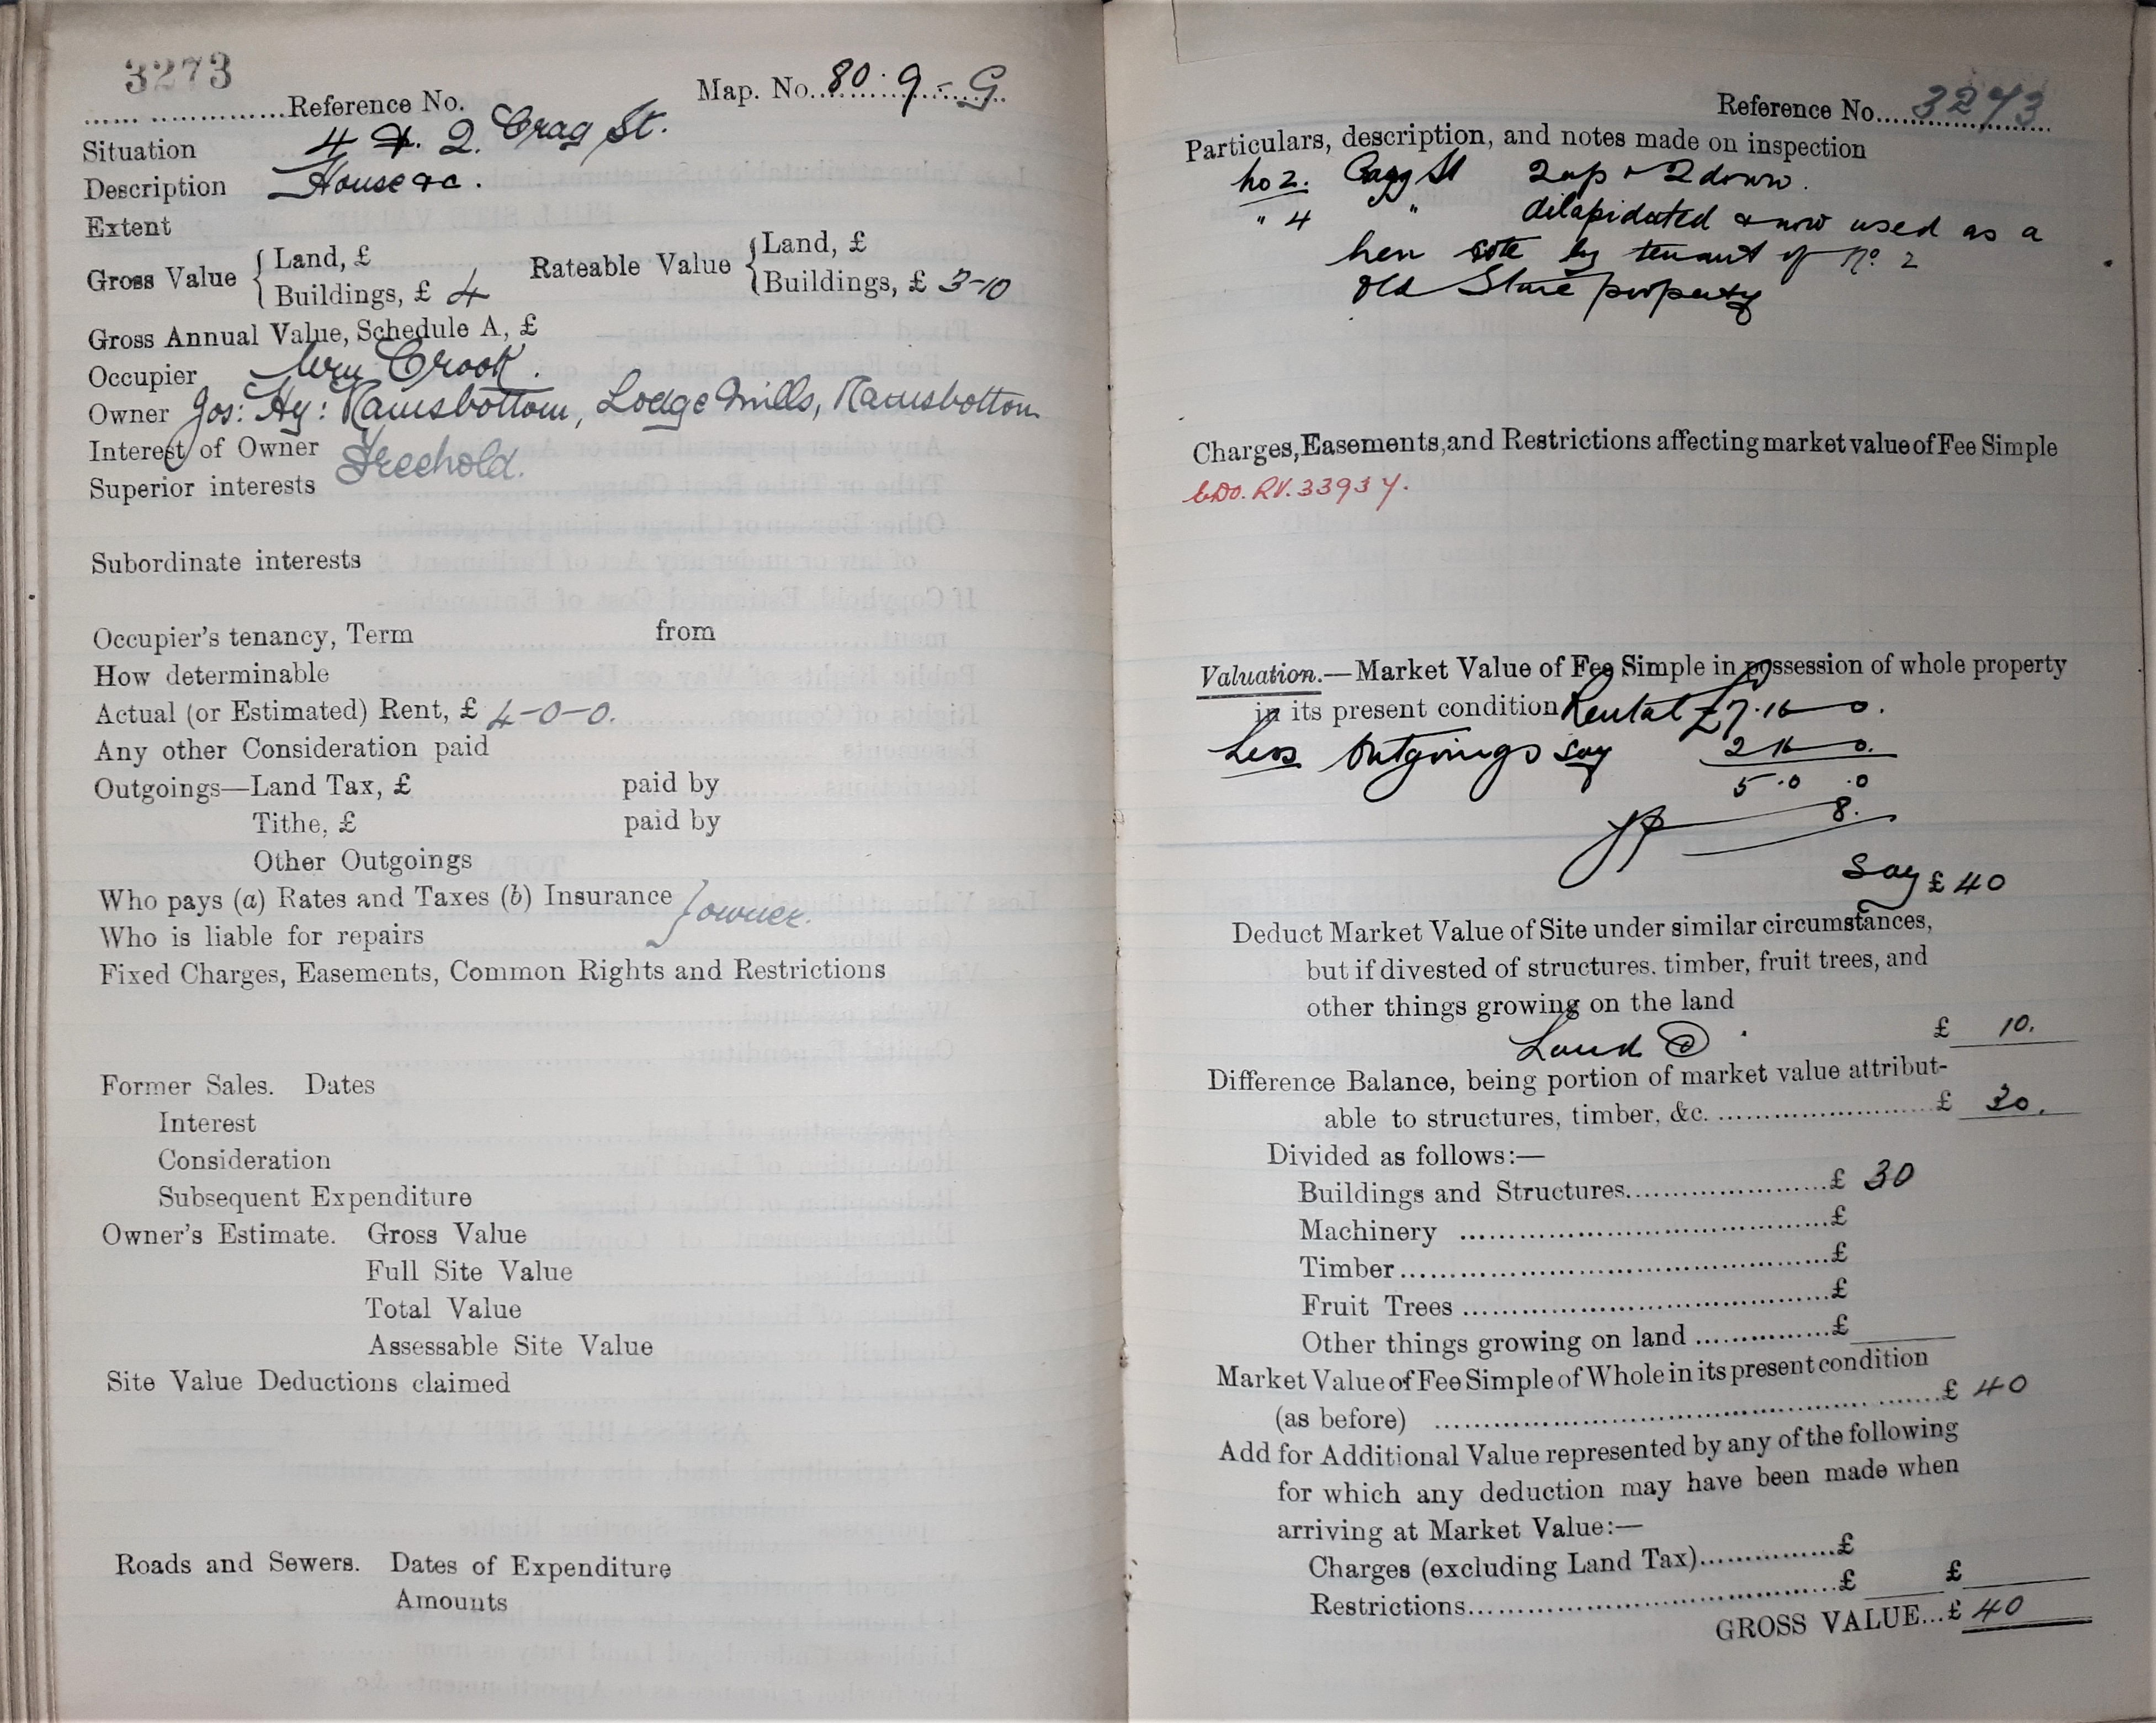 3273
...... ...............Reference No.
Map. No. 80.9.-G
Situation 4 & 2. Crag St.
Description House &c.
Extent
Gross Value { Land, £
Buildings, £ 4
Rateable Value { Land, £
Buildings, £ 3-10
Gross Annual Value, Schedule A, £
Occupier Wm Crook.
Owner Jos: Hy: Ramsbottom, Lodge Mills, Ramsbottom
Interest of Owner Freehold.
Superior interests
Subordinate interests
Occupier's tenancy, Term from
How determinable
Actual (or Estimated) Rent, £ 4-0-0.
Any other Consideration paid
Outgoings—Land Tax, £ paid by
Tithe, £ paid by
Other Outgoings
Who pays (a) Rates and Taxes (b) Insurance } owner.
Who is liable for repairs
Fixed Charges, Easements, Common Rights and Restrictions
Former Sales. Dates
Interest
Consideration
Subsequent Expenditure
Owner's Estimate. Gross Value
Full Site Value
Total Value
Assessable Site Value
Site Value Deductions claimed
Roads and Sewers. Dates of Expenditure
Amounts
Reference No. 3273
Particulars, description, and notes made on inspection
No 2. Crag St 2 up + 2 down.
" 4 " dilapidated & now used as a
hen cote by tenant of No. 2
Old Stone property
Charges, Easements, and Restrictions affecting market value of Fee Simple
RV. 33937.
Valuation.—Market Value of Fee Simple in possession of whole property
in its present condition Rental £7.16-0.
Less Outgoings say 2 16-0.
5.0.0
YP 8.
Say £40
Deduct Market Value of Site under similar circumstances,
but if divested of structures, timber, fruit trees, and
other things growing on the land
Land @ £ 10.
Difference Balance, being portion of market value attribut-
able to structures, timber, &c. ........................£ 30.
Divided as follows:—
Buildings and Structures........................£ 30
Machinery ........................£
Timber........................£
Fruit Trees ........................£
Other things growing on land ...............£
Market Value of Fee Simple of Whole in its present condition
(as before) ........................£ 40
Add for Additional Value represented by any of the following
for which any deduction may have been made when
arriving at Market Value:—
Charges (excluding Land Tax)...............£
Restrictions........................£ £
GROSS VALUE...£ 40